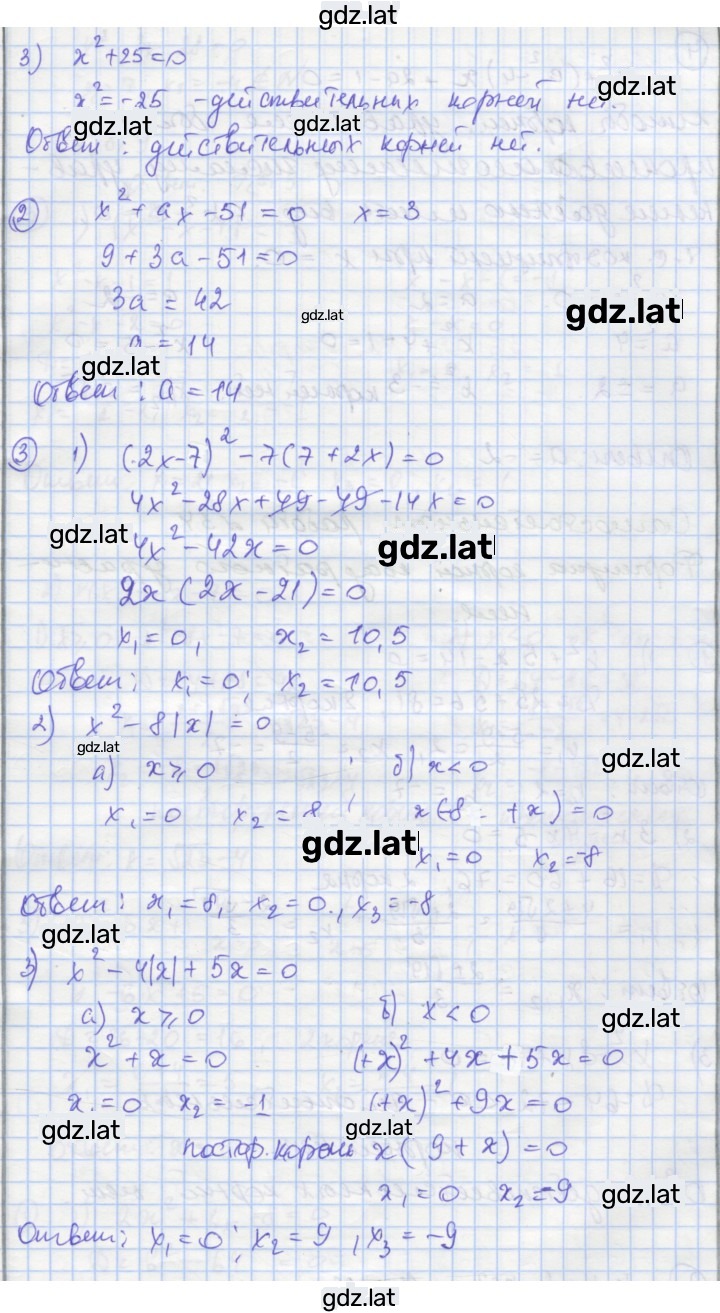 gdz.lat
3) x²+25=0
gdz.lat
x²=-25 -действительных корней нет.
gdz.lat gdz.lat
Ответ: действительных корней нет.
2 x²+ax-51=0 x=3
9+3a-51=0
3a=42
gdz.lat gdz.lat
a=14
gdz.lat
Ответ: a=14
3 1) (2x-7)²-7(7+2x)=0
4x²-28x+49-49-14x=0
gdz.lat gdz.lat
4x²-42x=0
2x(2x-21)=0
x₁=0, x₂=10,5
Ответ; x₁=0; x₂=10,5
2) x²-8|x|=0
gdz.lat gdz.lat
а) x⩾0 б) x<0
x₁=0 x₂=8 x(-8 +x)=0
gdz.lat
x₁=0 x₂=-8
Ответ: x₁=8, x₂=0., x₃=-8
gdz.lat
3) x²-4|x|+5x=0
а) x⩾0 б) x<0
gdz.lat
x²+x=0 (+x)²+4x+5x=0
x.=0 x₂=-1 (+x)²+9x=0
gdz.lat gdz.lat
постор. корень x(9+x)=0
x₁=0 x₂=-9
gdz.lat
Ответ; x₁=0; x₂=9, x₃=-9
gdz.lat